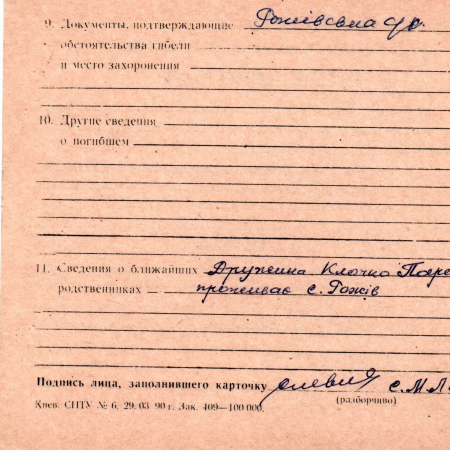 9. Документы, подтверждающие
обстоятельства гибели
и место захоронения
10. Другие сведения
о погибшем
11. Сведения о ближайших Дружина Клочко
родственниках — проживає с. Рожів
Подпись лица, заполнившего карточку
(разборчиво)
Киев. СПТУ № 6. 29. 03. 90 г. Зак. 409—100 000.